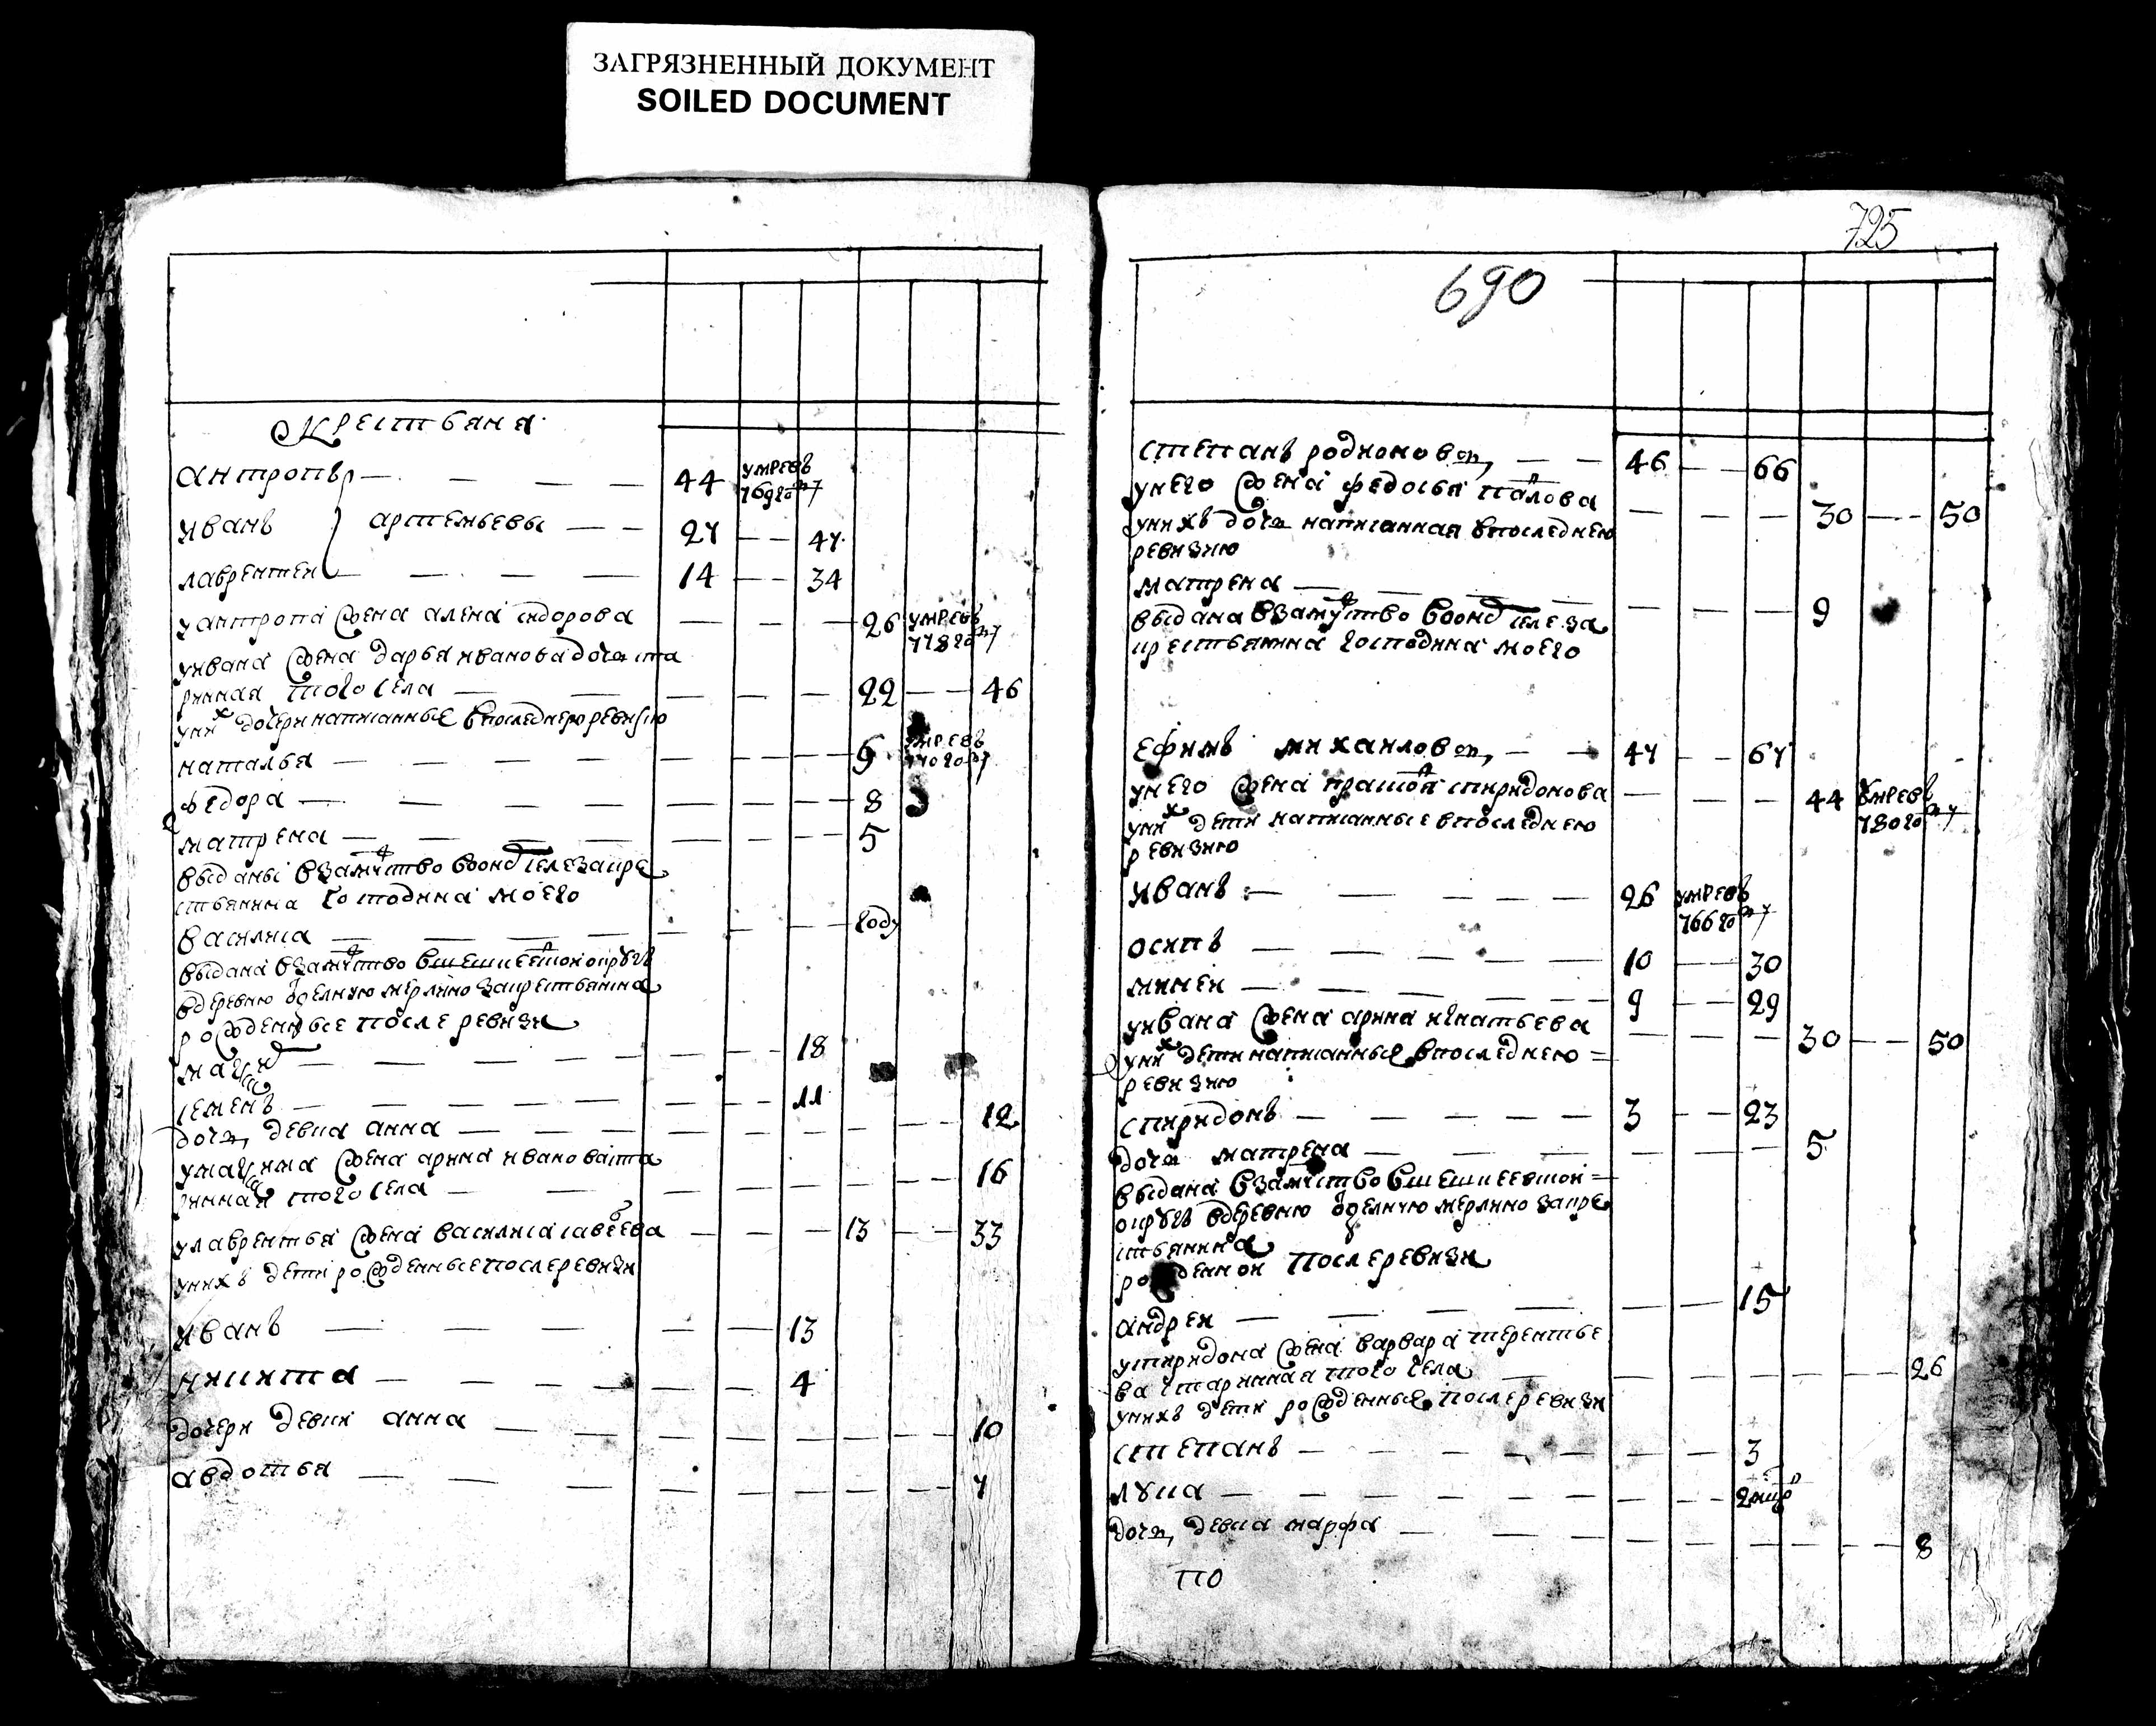 ЗАГРЯЗНЕННЫЙ ДОКУМЕНТ
SOILED DOCUMENT
крестьяня
антропъ — — — — 44 умревъ 769 году
иванъ артемьевы — — 27 — — 47
лаврентеи — — — — 14 — — 34
уантропа жена алена сидорова — — — 26 умревъ 778 году
уивана жена дарья иванова дочь ста
ринная того села — — — — — 22 — — 46
уних дочери написанные впоследнею ревизию
наталья — — — — — — — 9 умревъ 770 году
федора — — — — — — — 8
матрена — — — — — — — 5
выданы взамуство воонд селе за кре
стьянина господина моего
василиса — — — — — — — году
выдана взамуство
вдеревню мерлино закрестьянина
рожденные после ревизи
— — — — — — 18
семенъ — — — — — — 11
дочь девка анна — — — — — — 12
жена арина иванова ста
ринная того села — — — — — — 16
улаврентья жена василиса савеева — — — 13 — — 33
унихъ дети рожденные после ревизи
иванъ — — — — — 13
никита — — — — — — 4
дочери девки анна — — — — — — 10
авдотья — — — — — — 7
725
690
степанъ родионовъ — — 46 — — 66
унего жена федосья палова — — — 30 — — 50
унихъ дочь написанная впоследнею
ревизию
матрена — — — — — — 9
выдана взамуство воонд селе за
крестьянина господина моего
ефимъ михаиловъ — — 47 — — 67
унего жена спиридонова — — — 44 умревъ 780 году
уних дети написанные впоследнею
ревизию
иванъ — — — — 26 умревъ 766 году
осипъ — — — — 10 — — 30
минеи — — — — — 9 — — 29
уивана жена арина игнатьева — — — 30 — — 50
уних дети написанные впоследнею =
ревизию
спиридонъ — — — — 3 — — 23
дочь матрена — — — — — — 5
выдана взамуство =
вдеревню мерлино за кре
стьянина
рожденнои после ревизи
андреи — — — — — — 15
успиридона жена варвара терентье
ва старинная того села — — — — — — 26
унихъ дети рожденные после ревизи
степанъ — — — — — — — 3
лука — — — — — — —
дочь девка марфа — — — — — — 8
по